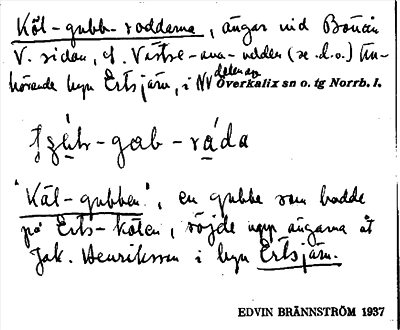 Köl-gubb-roddarna, ängar vid Bönån
V. sidan, f. Västre-ana-udden (se d.o.) till-
hörande byn Ertsjärn, i NV delen av Överkalix sn o. tg Norrb. l.
"Köl-gubben", en gubbe som bodde
på Erts-kölen, röjde upp ängarna åt
Jak. Henriksson i byn Ertsjärn.
EDVIN BRÄNNSTRÖM 1937